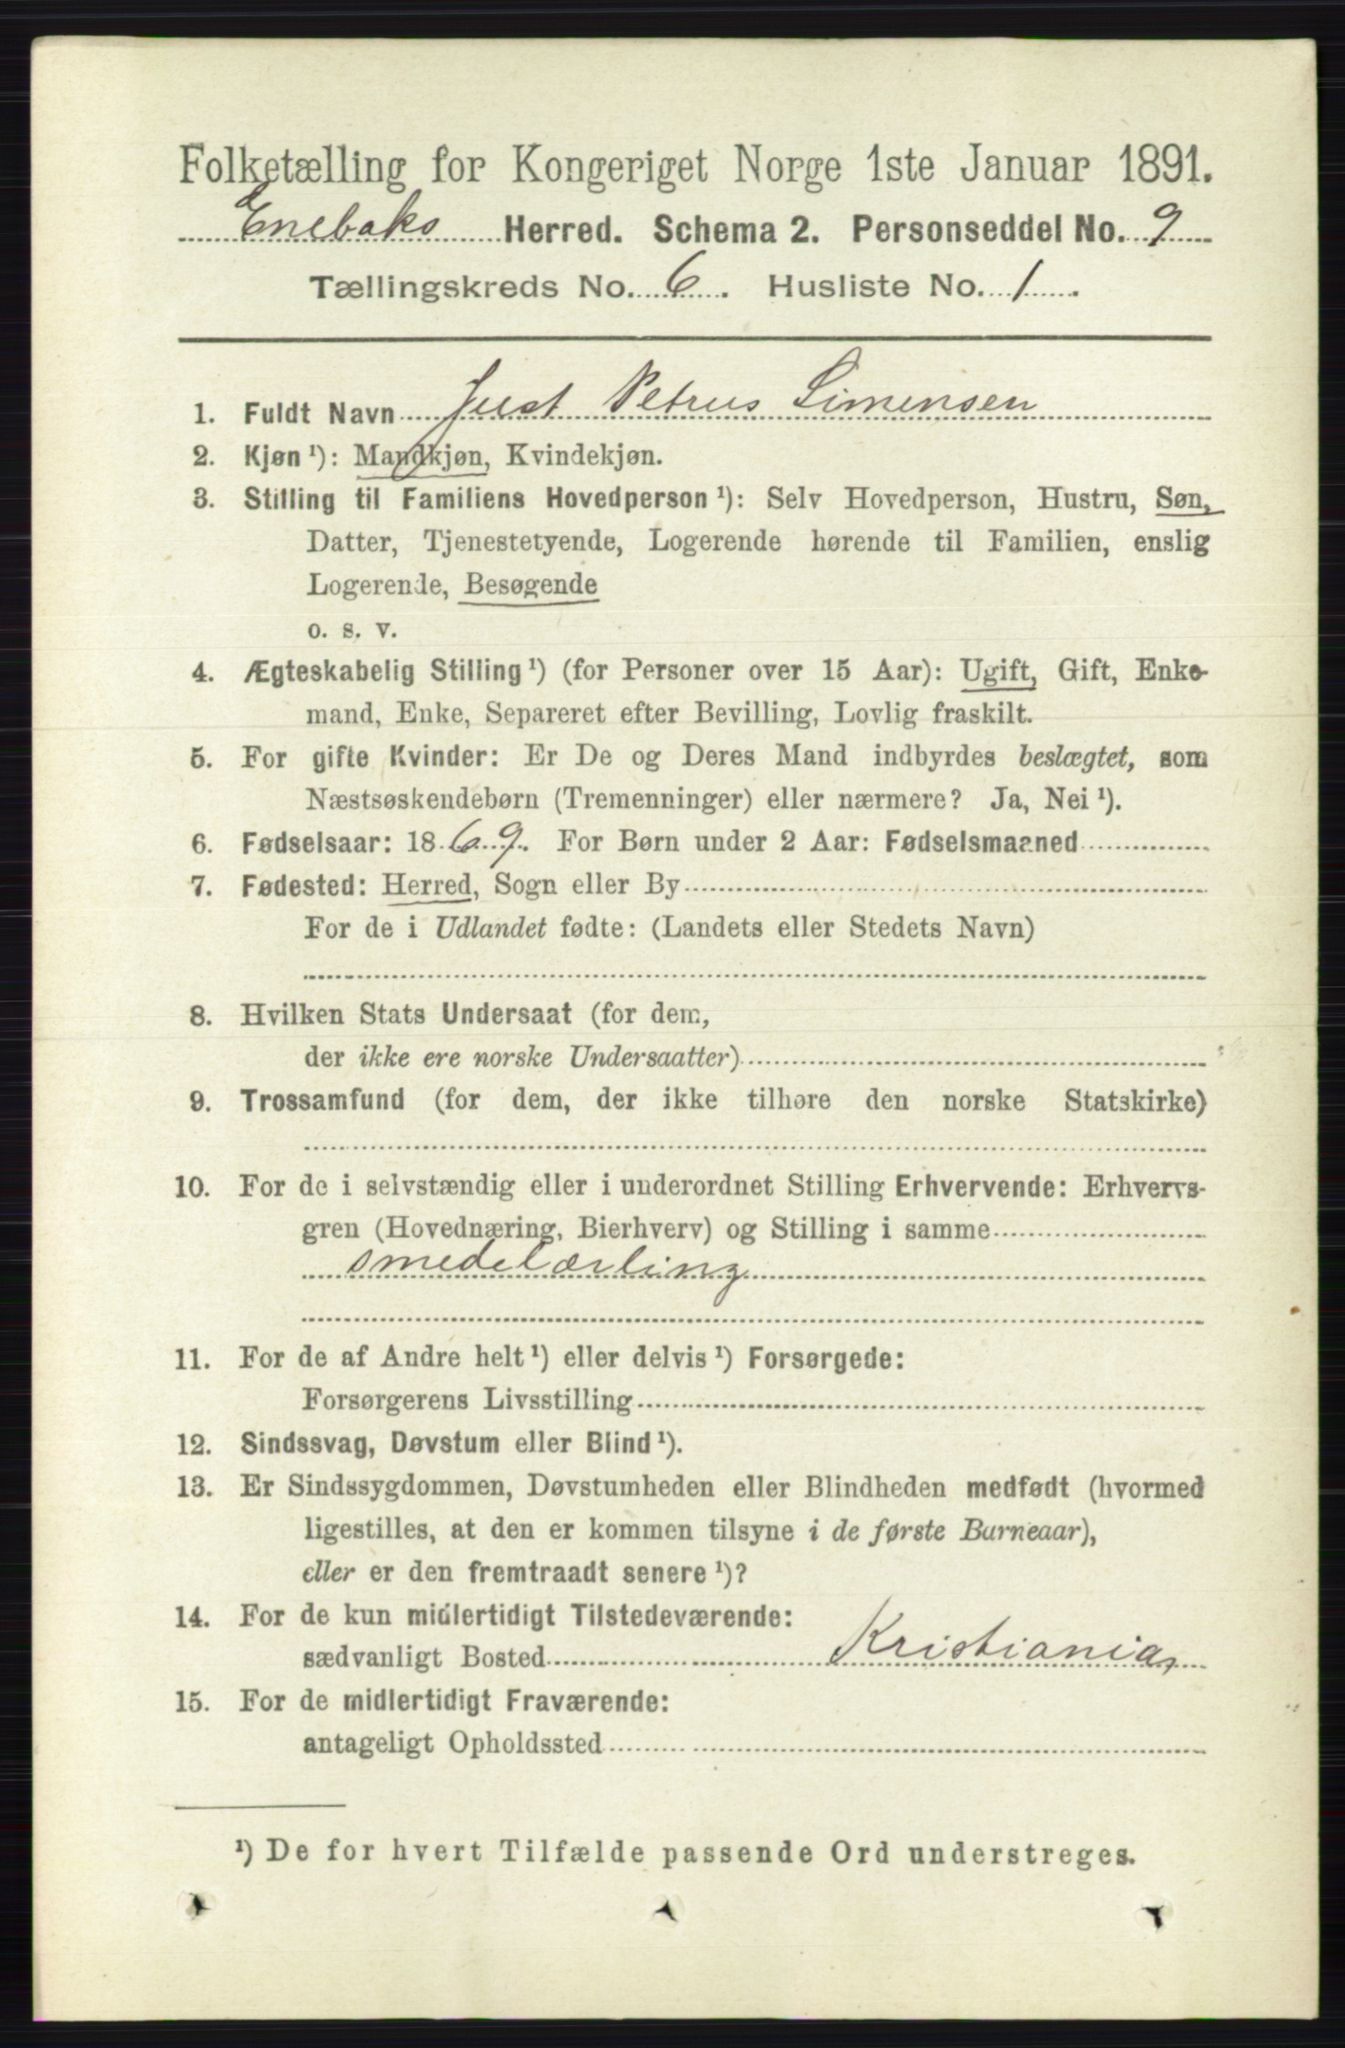 Folketælling for Kongeriget Norge 1ste Januar 1891.
Enebaks Herred. Schema 2. Personseddel No. 9
Tællingskreds No. 6. Husliste No. 1.
1. Fuldt Navn Just Petrus Simensen
2. Kjøn ¹): Mandkjøn, Kvindekjøn.
3. Stilling til Familiens Hovedperson ¹): Selv Hovedperson, Hustru, Søn,
Datter, Tjenestetyende, Logerende hørende til Familien, enslig
Logerende, Besøgende
o. s. v.
4. Ægteskabelig Stilling ¹) (for Personer over 15 Aar): Ugift, Gift, Enke-
mand, Enke, Separeret efter Bevilling, Lovlig fraskilt.
5. For gifte Kvinder: Er De og Deres Mand indbyrdes beslægtet, som
Næstsøskendebørn (Tremenninger) eller nærmere? Ja, Nei ¹).
6. Fødselsaar: 1869. For Børn under 2 Aar: Fødselsmaaned
7. Fødested: Herred, Sogn eller By
For de i Udlandet fødte: (Landets eller Stedets Navn)
8. Hvilken Stats Undersaat (for dem,
der ikke ere norske Undersaatter)
9. Trossamfund (for dem, der ikke tilhøre den norske Statskirke)
10. For de i selvstændig eller i underordnet Stilling Erhvervende: Erhvervs-
gren (Hovednæring, Bierhverv) og Stilling i samme
smedelærling
11. For de af Andre helt ¹) eller delvis ¹) Forsørgede:
Forsørgerens Livsstilling
12. Sindssvag, Døvstum eller Blind ¹).
13. Er Sindssygdommen, Døvstumheden eller Blindheden medfødt (hvormed
ligestilles, at den er kommen tilsyne i de første Barneaar),
eller er den fremtraadt senere ¹)?
14. For de kun midlertidigt Tilstedeværende:
sædvanligt Bosted Kristiania
15. For de midlertidigt Fraværende:
antageligt Opholdssted
¹) De for hvert Tilfælde passende Ord understreges.